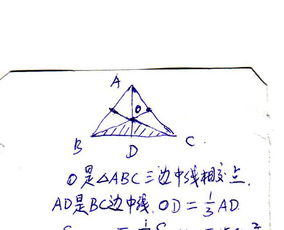 A
O
B D C
O是△ABC三边中线相交点.
AD是BC边中线. OD=1/3AD.